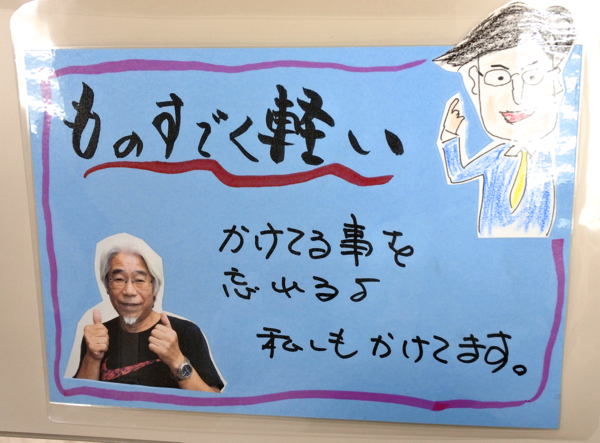 ものすごく軽い
かけてる事を
忘れるよ
私しもかけてます。